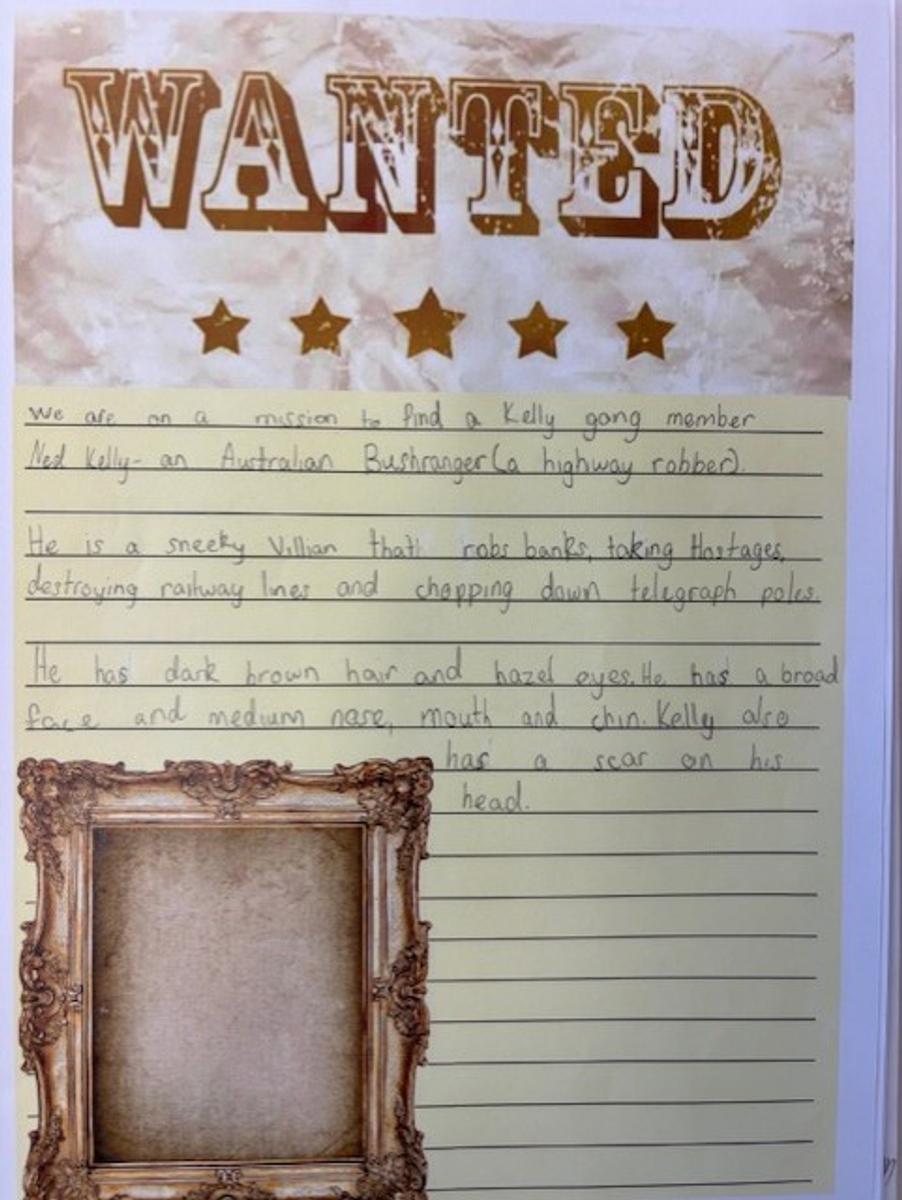 WANTED
we are on a mission to find a Kelly gang member
Ned Kelly- an Australian Bushranger (a highway robber).
He is a sneeky Villian that robs banks, taking Hostages,
destroying railway lines and chopping down telegraph poles.
He has dark brown hair and hazel eyes. He has a broad
face and medium nose, mouth and chin. Kelly also
has a scar on his
head.